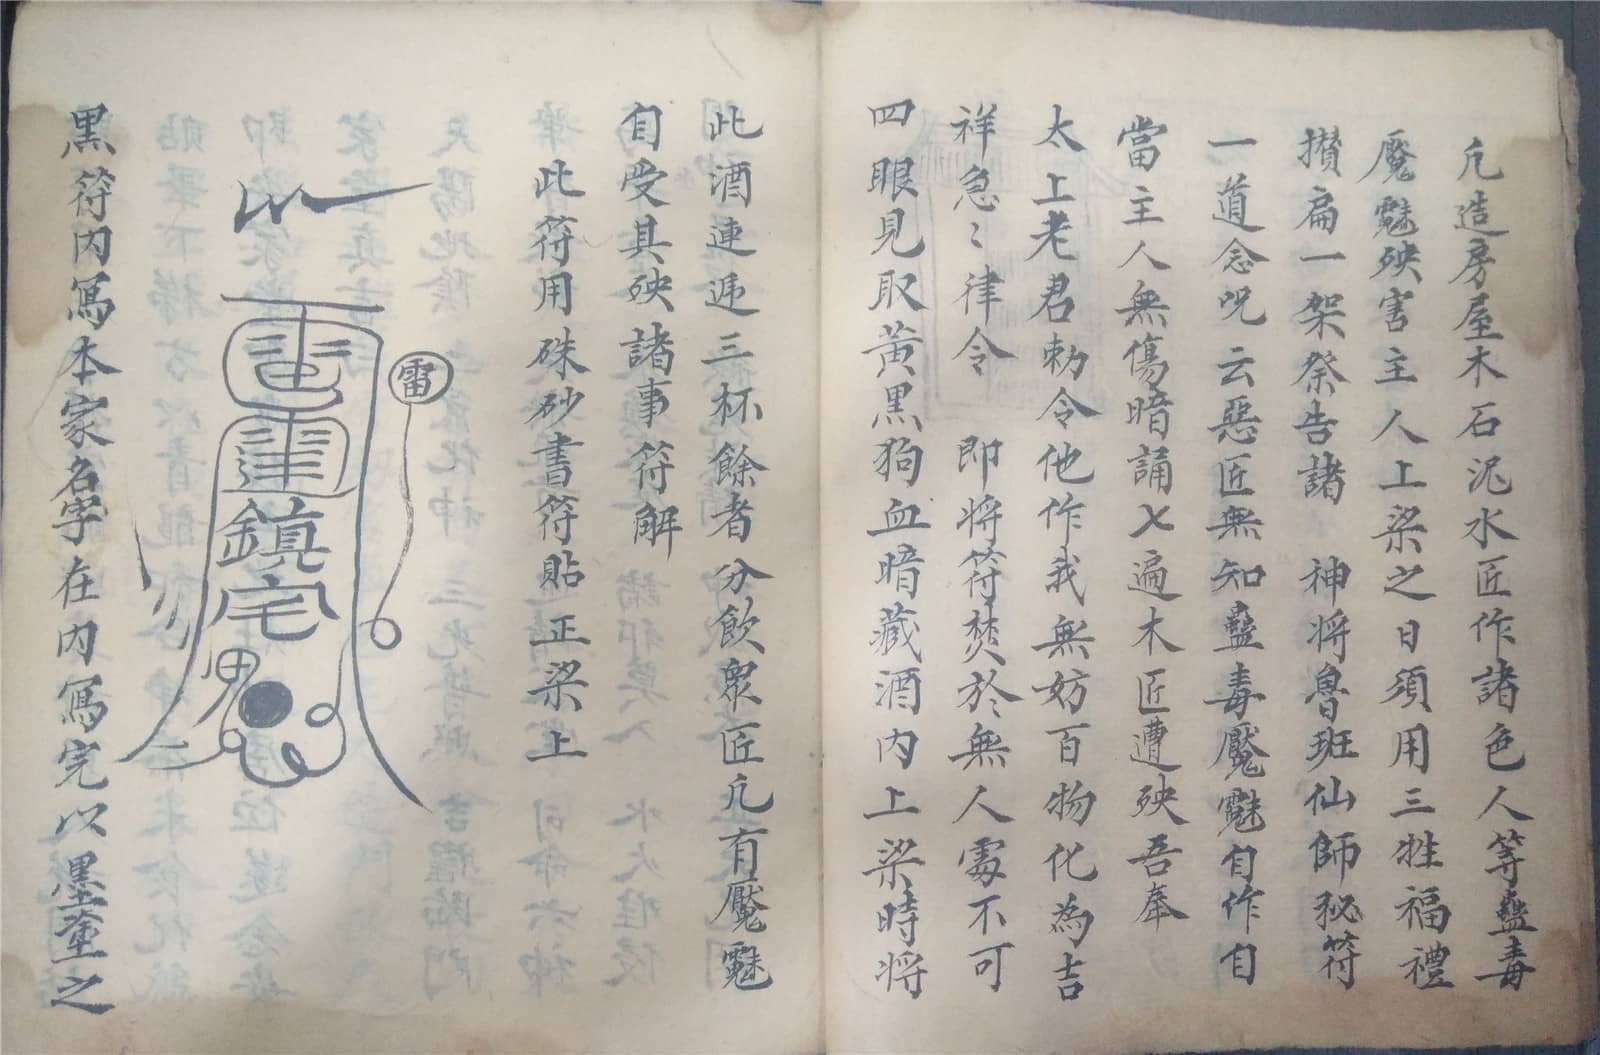 凢造房屋木石泥水匠作諸色人等蠱毒
魘魅殃害主人上梁之日須用三牲福禮
攅扁一架祭告諸　神将魯班仙師秘符
一道念咒云惡匠無知蠱毒魘魅自作自
當主人無傷暗誦七遍木匠遭殃吾奉
太上老君勅令他作我無妨百物化為吉
祥急〻律令　即将符焚於無人處不可
四眼見取黃黒狗血暗藏酒内上梁時将
此酒連逓三杯餘者分飲衆匠凢有魘魅
自受其殃諸事符解
此符用硃砂書符貼正梁上
雷
鎮宅
鬼
黒符内寫本家名字在内寫完以墨塗之